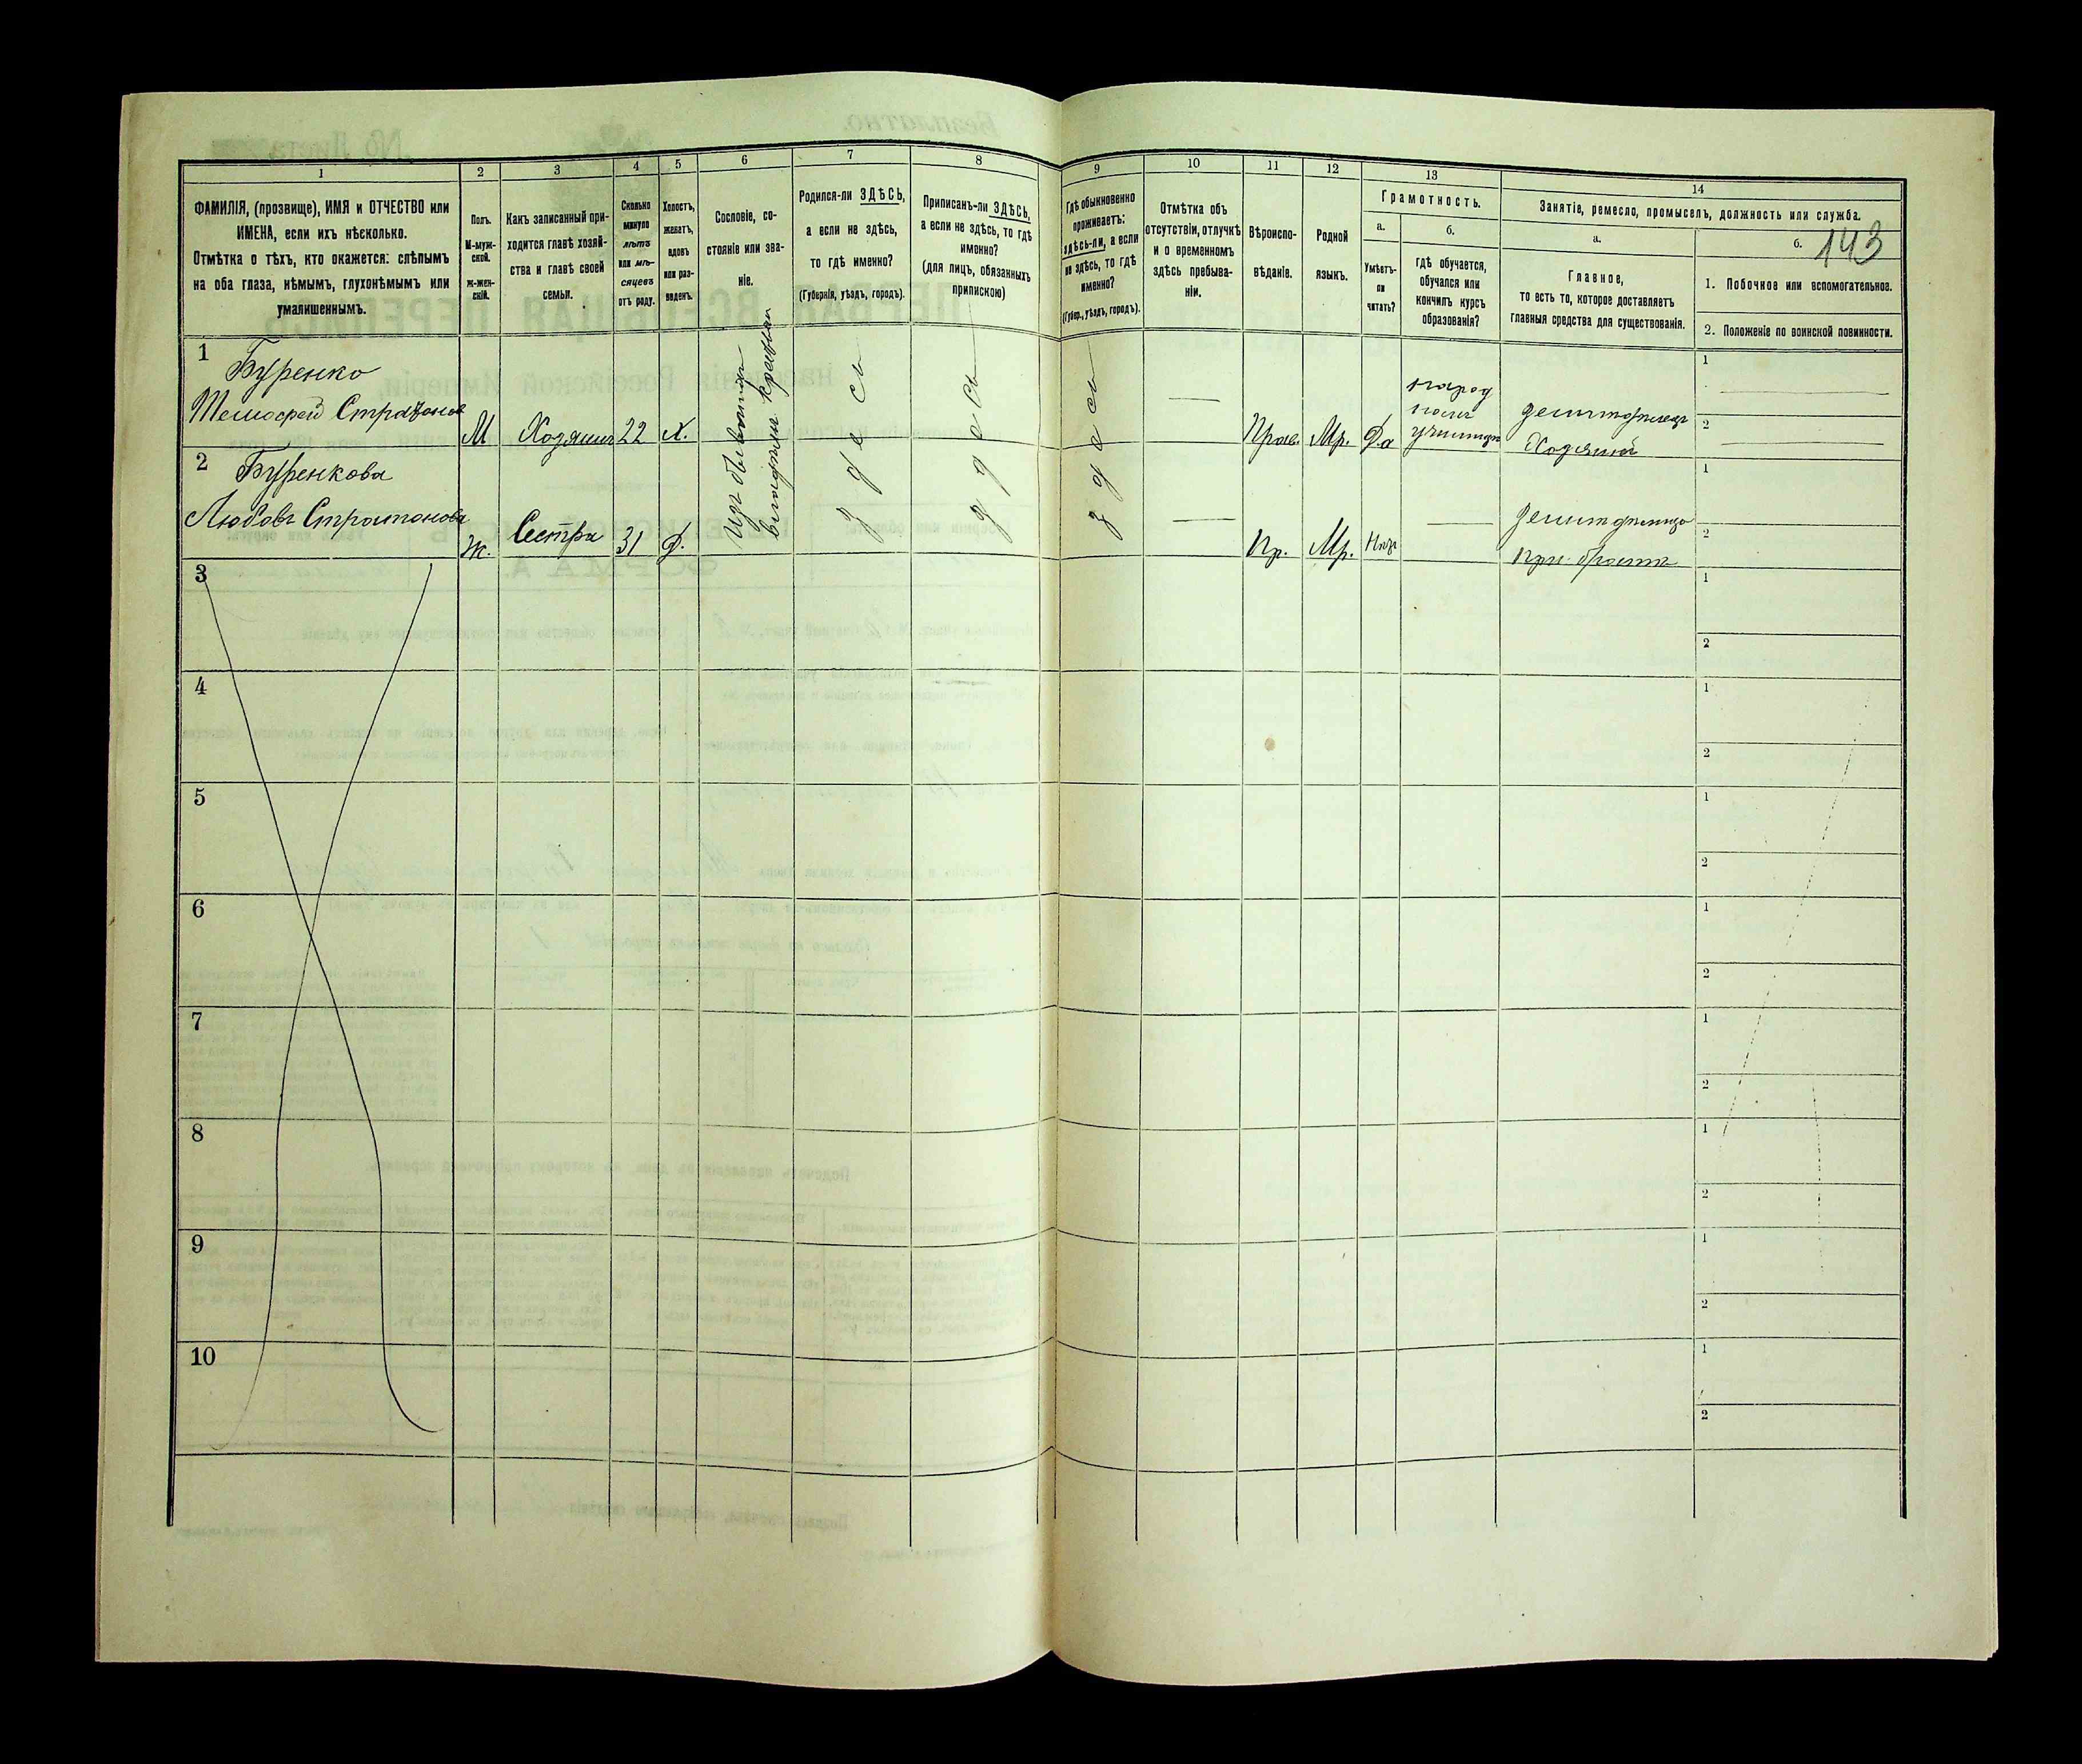 1
2
3
4
5
6
7
8
9
10
11
12
13
14
ФАМИЛІЯ, (прозвище), ИМЯ и ОТЧЕСТВО или
ИМЕНА, если ихъ нѣсколько.
Отмѣтка о тѣхъ, кто окажется: слѣпымъ
на оба глаза, нѣмымъ, глухонѣмымъ или
умалишеннымъ.
Полъ.
М-муж-
ской.
Ж-жен-
скій.
Какъ записанный при-
ходится главѣ хозяй-
ства и главѣ своей
семьи.
Сколько
минуло
лѣтъ
или мѣ-
сяцевъ
отъ роду.
Холостъ,
женатъ,
вдовъ
или раз-
веденъ.
Сословіе, со-
стояніе или зва-
ніе.
Родился-ли ЗДѢСЬ,
а если не здѣсь,
то гдѣ именно?
(Губернія, уѣздъ, городъ).
Приписанъ-ли ЗДѢСЬ,
а если не здѣсь, то гдѣ
именно?
(для лицъ, обязанныхъ
припискою)
Гдѣ обыкновенно
проживаетъ:
здѣсь-ли, а если
не здѣсь, то гдѣ
именно?
(Губер., уѣздъ, городъ).
Отмѣтка объ
отсутствіи, отлучкѣ
и о временномъ
здѣсь пребыва-
ніи.
Вѣроиспо-
вѣданіе.
Родной
языкъ.
Грамотность.
а.
Умѣетъ-
ли
читать?
б.
гдѣ обучается,
обучался или
кончилъ курсъ
образованія?
Занятіе, ремесло, промыселъ, должность или служба.
а.
Главное,
то есть то, которое доставляетъ
главныя средства для существованія.
б.
143
1. Побочное или вспомогательное.
2. Положеніе по воинской повинности.
1
Буренко
М
Хозяинъ
22
Х.
изъ бывшихъ
здесь
здесь
здесь
Прав.
Мр.
Да
народ
училищѣ
Хозяинъ
1
2
2
Буренкова
Любовь
Ж.
Сестра
31
Д.
Пр.
Мр.
при братѣ
1
2
3
1
2
4
1
2
5
1
2
6
1
2
7
1
2
8
1
2
9
1
2
10
1
2